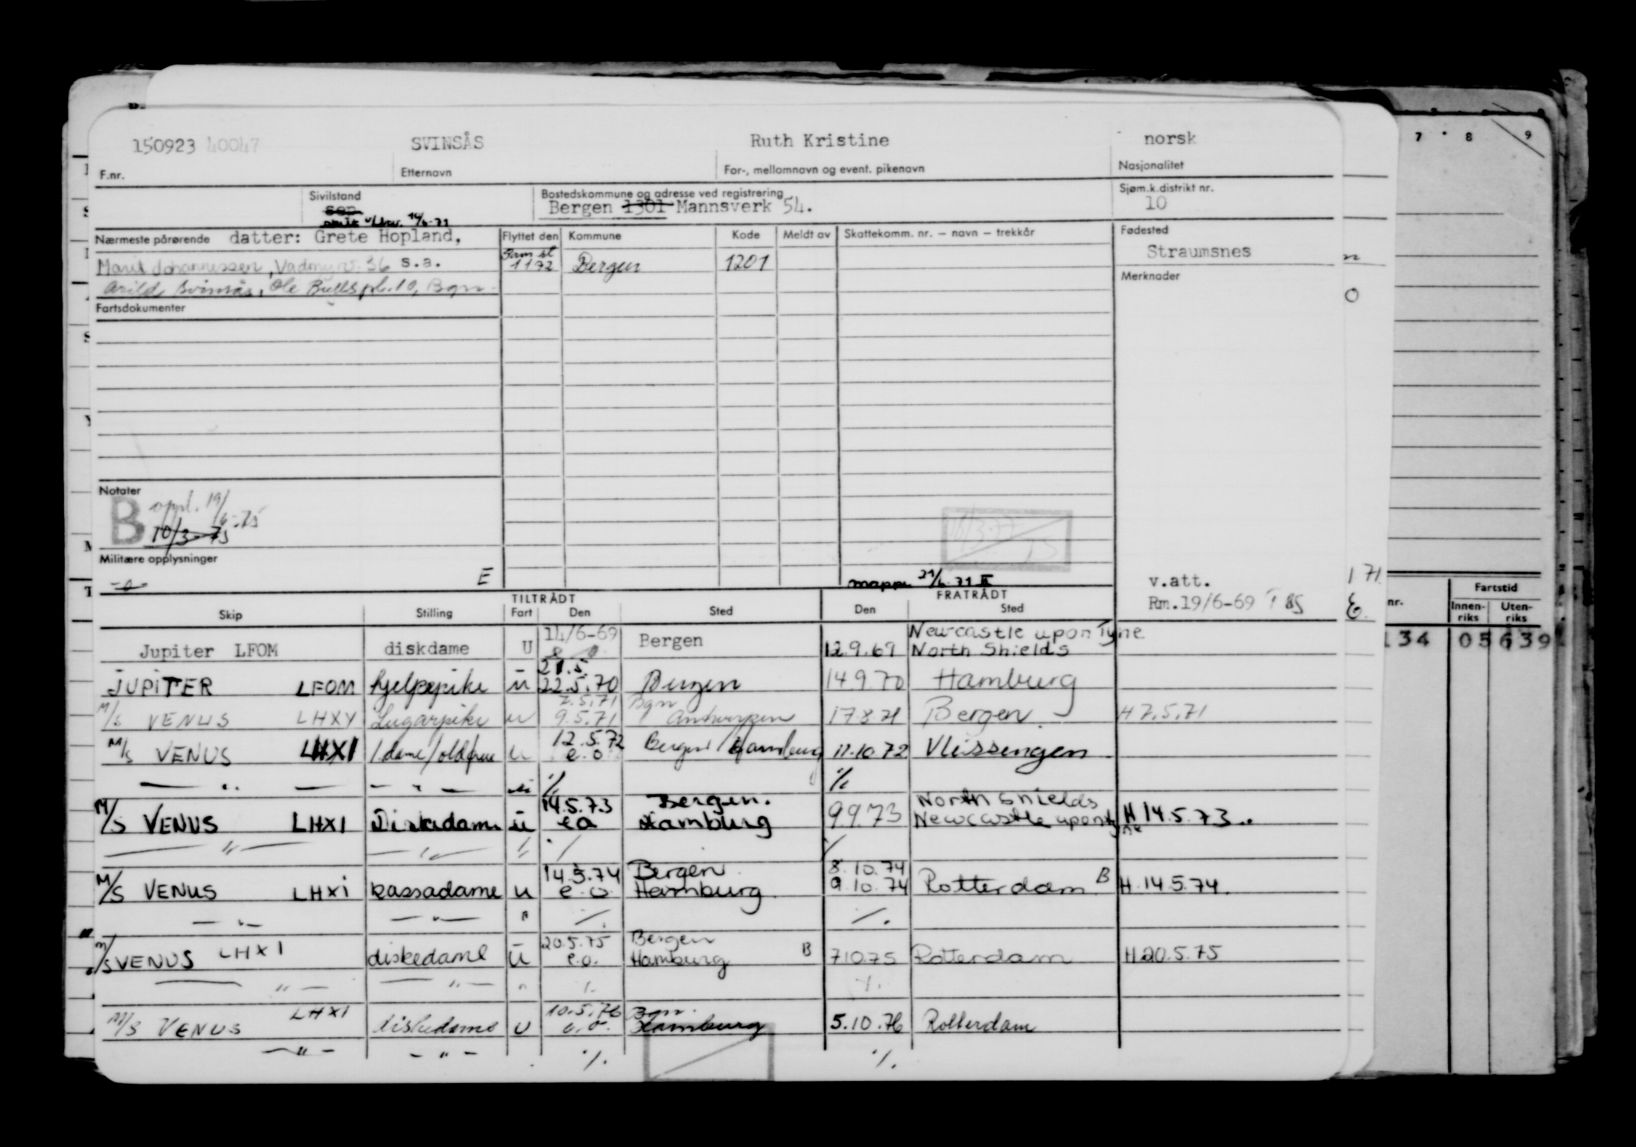 7 8 9
150923 40047 SVINSÅS Ruth Kristine norsk
F.nr. Etternavn For-, mellomnavn og event. pikenavn Nasjonalitet
Sivilstand Bostedskommune og adresse ved registrering Sjøm.k.distrikt nr.
Bergen 1301 Mannsverk 54. 10
Nærmeste pårørende datter: Grete Hopland, Flyttet den Kommune Kode Meldt av Skattekomm. nr. – navn – trekkår Fødested
Straumsnes
Marit Johannessen, 36 s.s. 1172 Bergen 1201
Merknader
Arild Svinsås, Ole Bulls pl. 10, Bgn.
Fartsdokumenter
Notater
B oppl. 19/6-75
10/3-75
Militære opplysninger
E mappe 21/6.71 v.att.
Rm.19/6-69
TILTRÅDT FRATRÅDT
Skip Stilling Fart Den Sted Den Sted
Fartstid
nr. Innen-riks Uten-riks
134 05639
Jupiter LFOM diskdame U 14/6-69 Bergen 12.9.69 Newcastle upon Tyne North Shields
JUPITER LFOM hjelpepike u 21.5 22.5.70 Bergen 14.9.70 Hamburg
M/S VENUS LHXY Lugarpike u 7.5.71 9.5.71 Bgn Antwerpen 17.8.71 Bergen H 7.5.71
M/S VENUS LHXI u 12.5.72 e.o Bergen / Hamburg 11.10.72 Vlissingen
— " — — " — " % %
M/S VENUS LHXI Diskedame u 14.5.73 eo Bergen. Hamburg 9.9.73 North Shields Newcastle upon Tyne H 14.5.73.
— " — — " — " %
M/S VENUS LHXI kassadame u 14.5.74 e.o. Bergen Hamburg 8.10.74 9.10.74 Rotterdam B H 14.5.74.
— " — — " — " %. %.
M/S VENUS LHXI diskedame u 20.5.75 e.o. Bergen Hamburg B 7.10.75 Rotterdam H 20.5.75
— " — — " — " %. %.
M/S VENUS LHXI diskedame u 10.5.76 e.o. Bgn. Hamburg 5.10.76 Rotterdam
— " — — " — %. %.